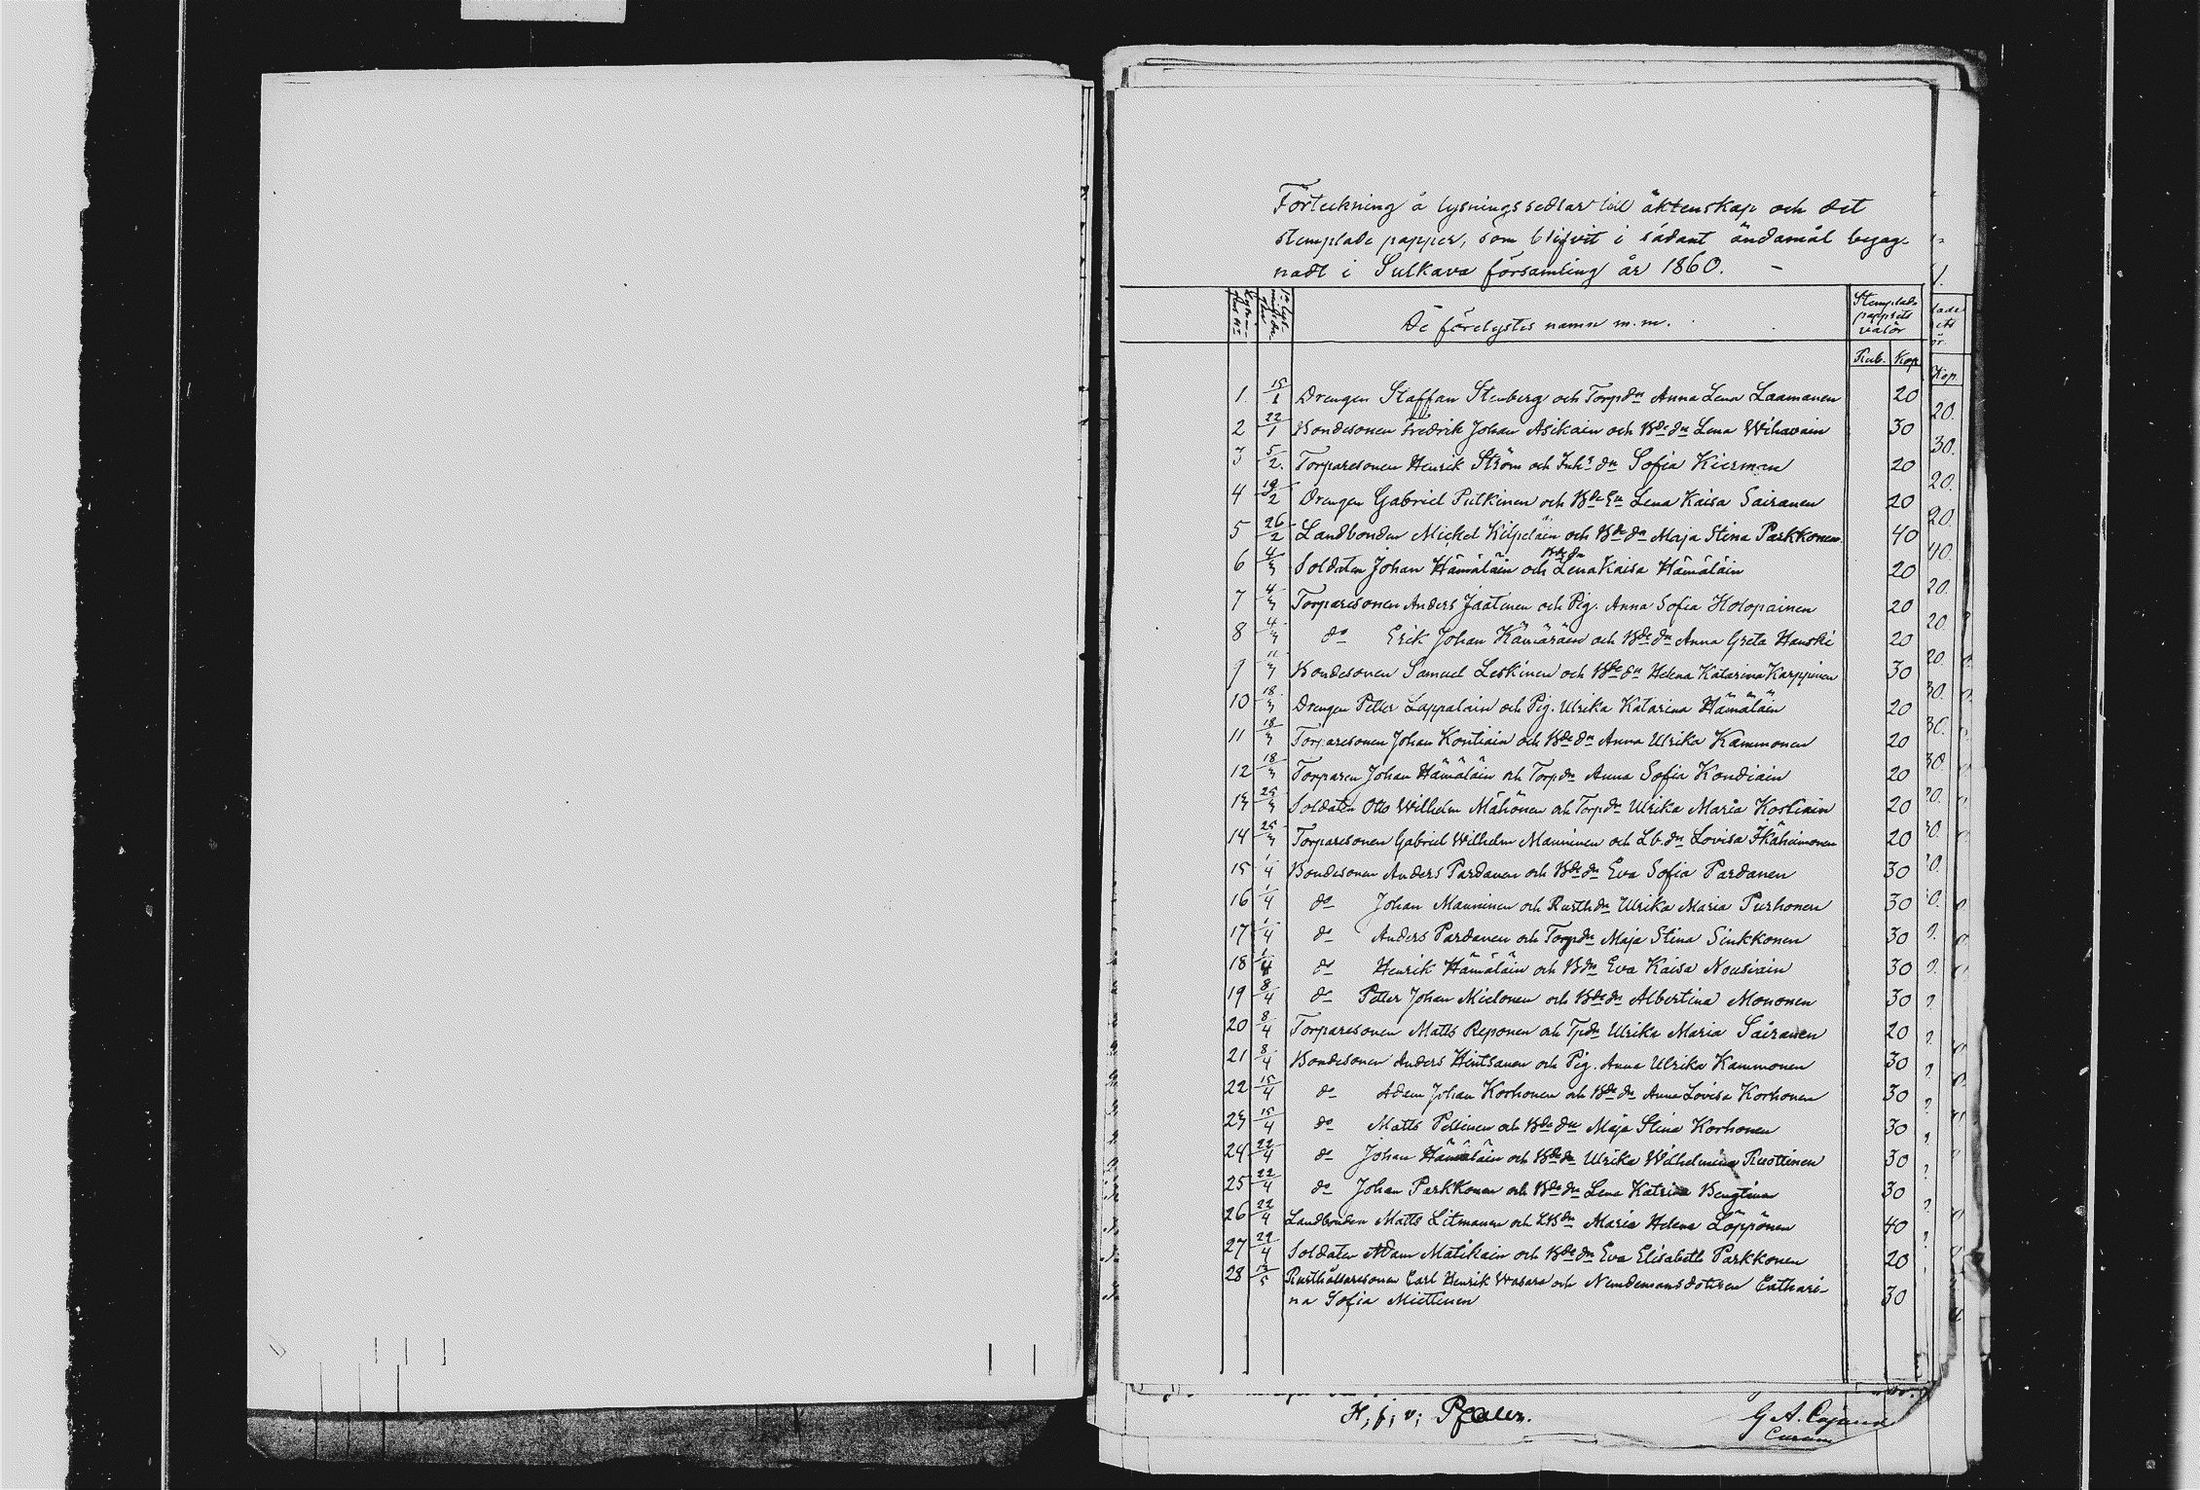 Förteckning å lysningssedlar till äktenskap och det
stemplade papper, som blifvit i sådant ändamål begag-
nadt i Sulkava församling år 1860. –
De förelystes namn m.m.
Stemplade
papprets
valör
Rub. Kop
1 15/1 Drengen Staffan Stenberg och Torpdn Anna Lena Laamanen 20
2 22/1 Bondesonen Fredrik Johan Asikain och Bdedn Lena Wihavain 30
3 5/2. Torparesonen Henrik Ström och Inhs dn Sofia Kierman 20
4 19/2 Drengen Gabriel Putkinen och Bdedn Lena Kaisa Sairanen 20
5 26/2 Landbonden Mickel Kilpeläin och Bdedn Maja Stina Parkkonen 40
6 4/3 Soldaten Johan Hämäläin och Bdedn Lena Kaisa Hämäläin 20
7 4/3 Torparesonen Anders Jäätinen och Pig. Anna Sofia Holopainen 20
8 4/3 do Erik Johan Kämäräin och Bdedn Anna Greta Hanski 20
9 11/3 Bondesonen Samuel Leskinen och Bdedn Helena Katarina Karppinen 30
10 18/3 Drengen Petter Lappalain och Pig. Ulrika Katarina Hämäläin 20
11 18/3 Torparesonen Johan Kontiain och Bdedn Anna Ulrika Kammonen 20
12 18/3 Torparen Johan Hämäläin och Torpdn Anna Sofia Kondiain 20
13 25/3 Soldaten Otto Wilhelm Mähönen och Torpdn Ulrika Maria Kostiain 20
14 25/3 Torparesonen Gabriel Wilhelm Manninen och Lb.dn Lovisa Ikäheimonen 20
15 1/4 Bondesonen Anders Pardanen och Bdedn Eva Sofia Pardanen 30
16 1/4 do Johan Manninen och Rusthdn Ulrika Maria Purhonen 30
17 1/4 do Anders Pardanen och Torpdn Maja Stina Sinkkonen 30
18 1/4 do Henrik Hämäläin och Bdn Eva Kaisa Nousiain 30
19 8/4 do Petter Johan Mielonen och Bdedn Albertina Mononen 30
20 8/4 Torparesonen Matts Reponen och Tpdn Ulrika Maria Sairanen 20
21 8/4 Bondesonen Anders Hintsanen och Pig. Anna Ulrika Kammonen 30
22 15/4 do Adam Johan Korhonen och Bdedn Anna Lovisa Korhonen 30
23 15/4 do Matts Pellinen och Bdedn Maja Stina Korhonen 30
24 22/4 do Johan Hämäläin och Bdedn Ulrika Wilhelmina Ruottinen 30
25 22/4 do Johan Parkkonen och Bdedn Lena Katrina Bengtinen 30
26 22/4 Landbonden Matts Litmanen och LBdn Maria Helena Löppönen 40
27 22/4 Soldaten Adam Matikain och Bdedn Eva Elisabeth Parkkonen 20
28 13/5 Rusthållaresonen Carl Henrik Wasara och Nemdemansdottren Cathari-
na Sofia Miettinen 30
H; f; v; Pfaler.
G A. Cajanus